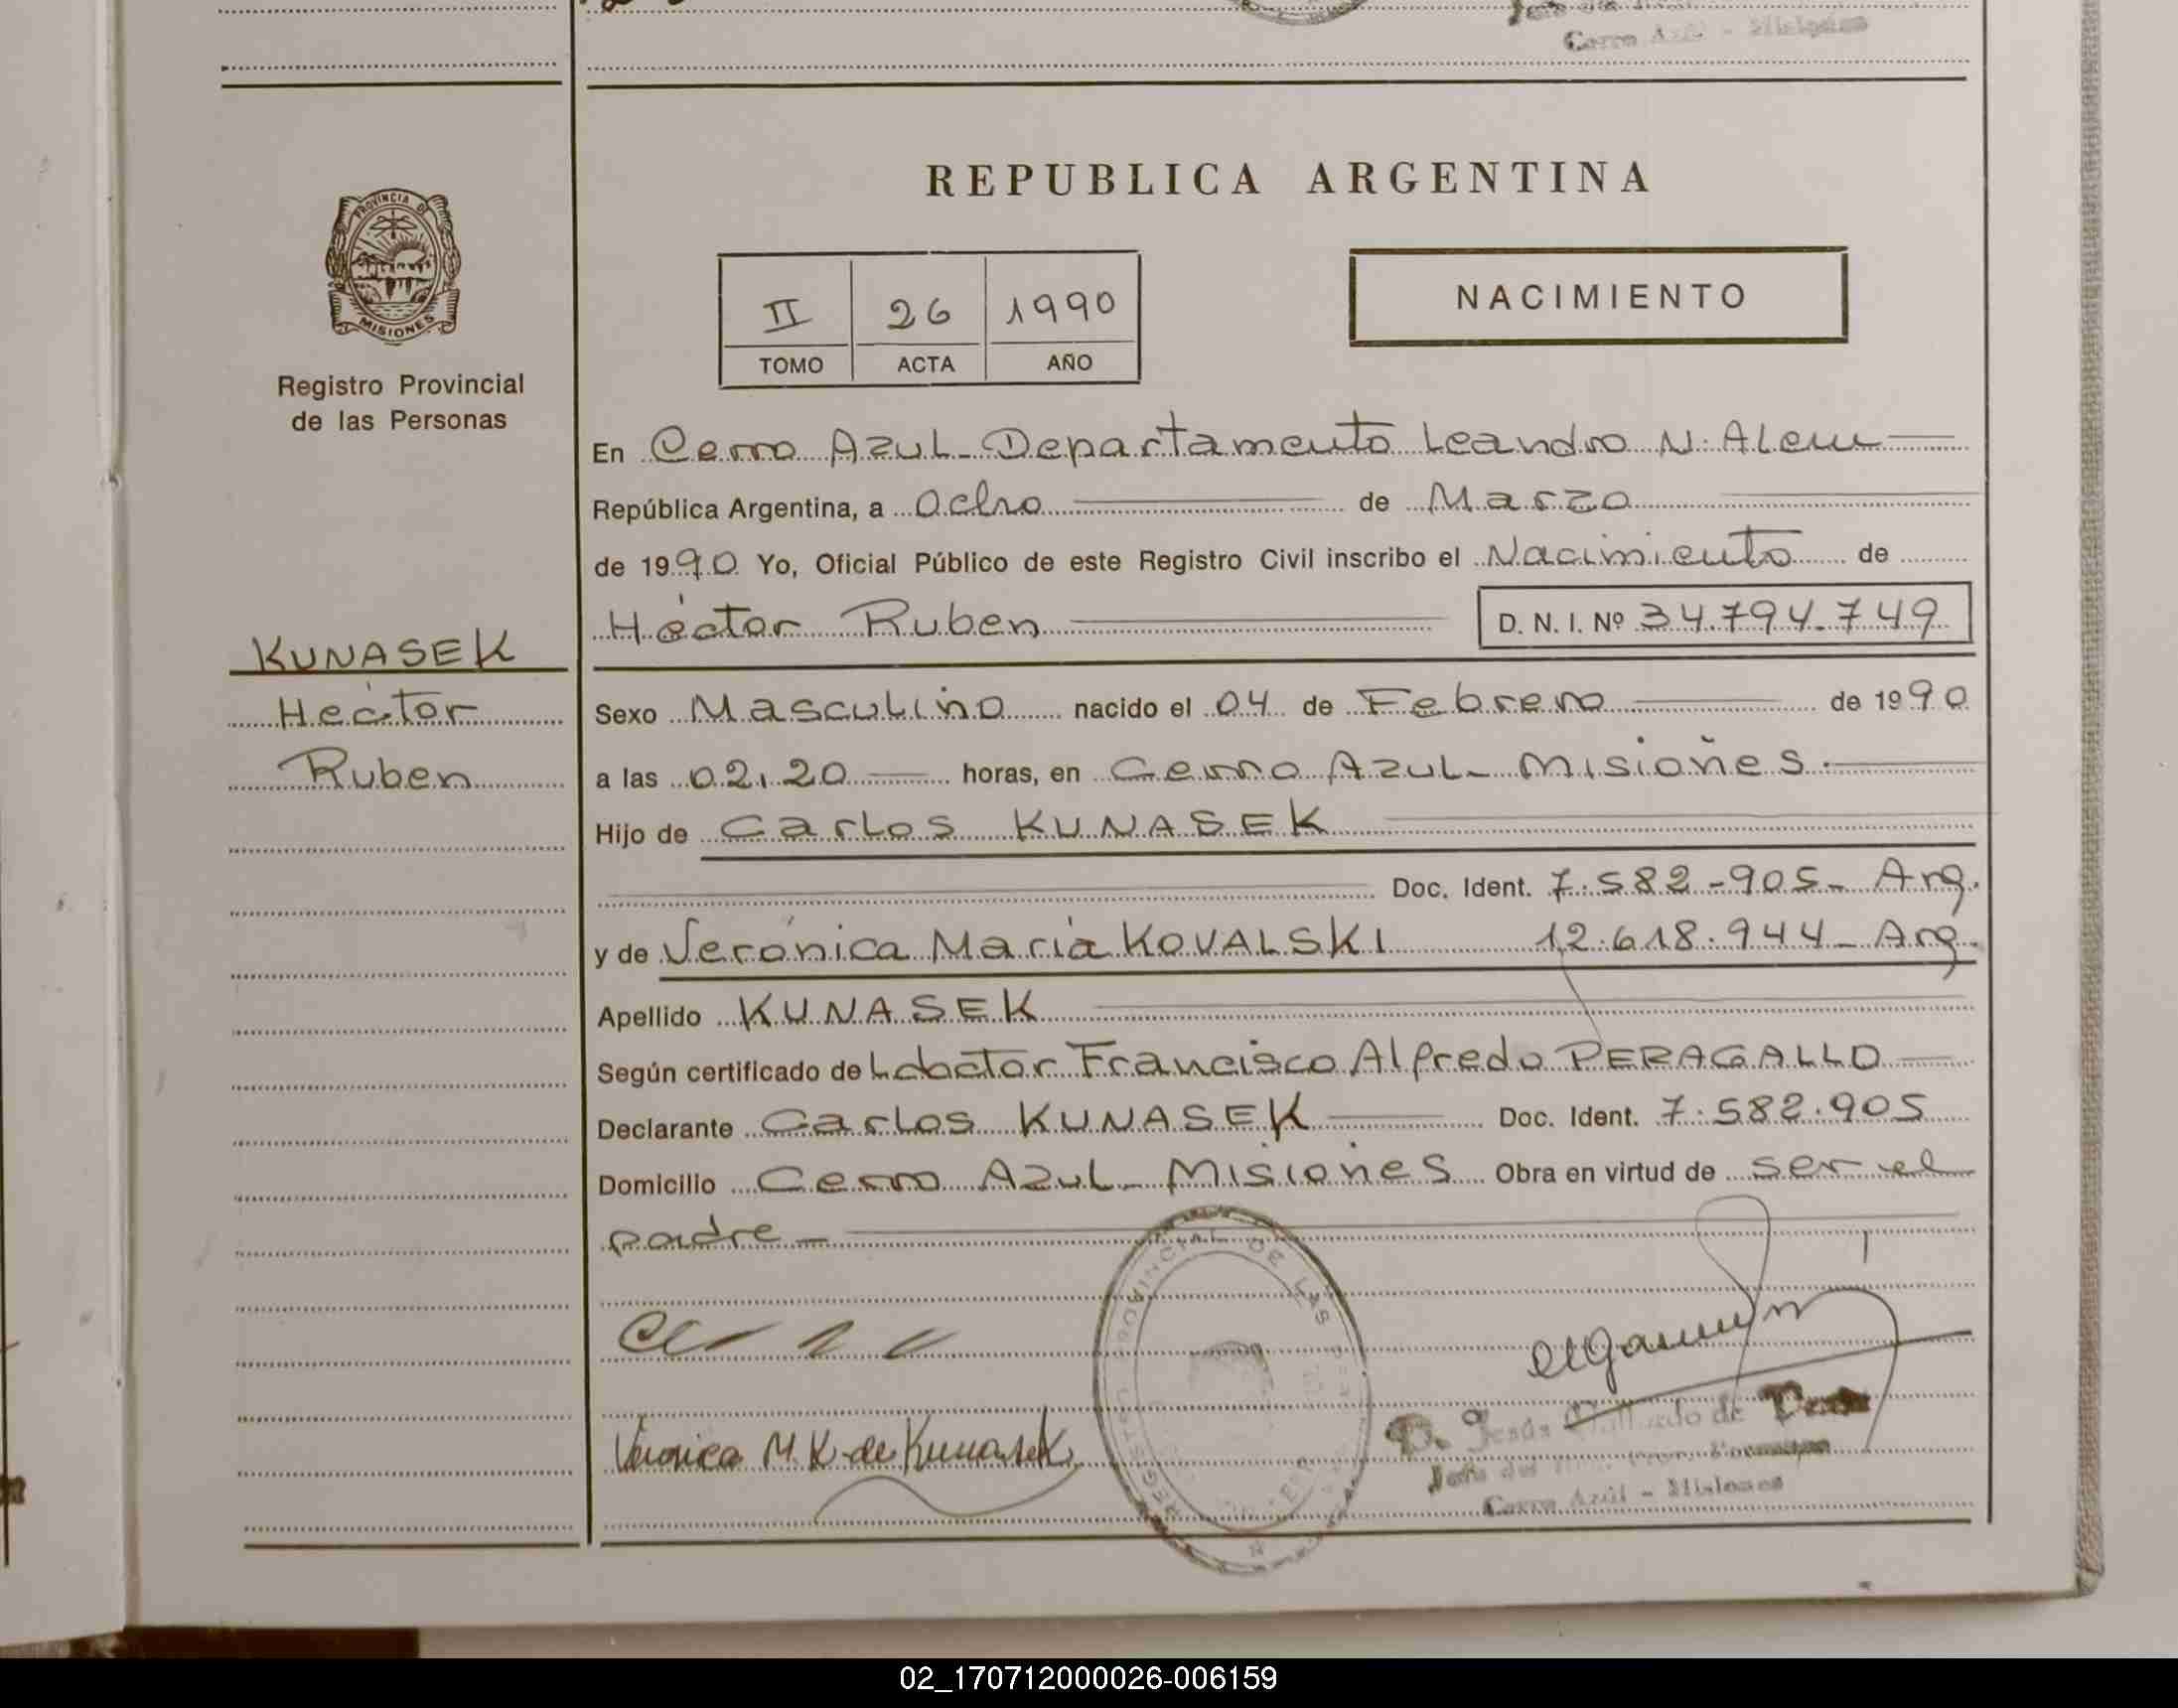 Cerro Azul - Misiones
REPUBLICA ARGENTINA
PROVINCIA DE
MISIONES
Registro Provincial
de las Personas
II 26 1990
TOMO ACTA AÑO
NACIMIENTO
En Cerro Azul - Departamento Leandro N. Alem
República Argentina, a Ocho de Marzo
de 1990 Yo, Oficial Público de este Registro Civil inscribo el Nacimiento de
Héctor Ruben D. N. I. Nº 34.794.749
KUNASEK
Héctor
Ruben
Sexo Masculino nacido el 04 de Febrero de 1990
a las 02,20 horas, en Cerro Azul - Misiones.
Hijo de Carlos KUNASEK
Doc. Ident. 7.582-905- Arg.
y de Verónica María KOVALSKI 12.618.944- Arg.
Apellido KUNASEK
Según certificado del doctor Francisco Alfredo PERAGALLO
Declarante Carlos KUNASEK Doc. Ident. 7.582.905
Domicilio Cerro Azul - Misiones Obra en virtud de ser el
padre -
REGISTRO PROVINCIAL DE LAS
Veronica M. K. de Kunasek
D. Jesús de
Jefe del
Cerro Azúl - Misiones
02_170712000026-006159